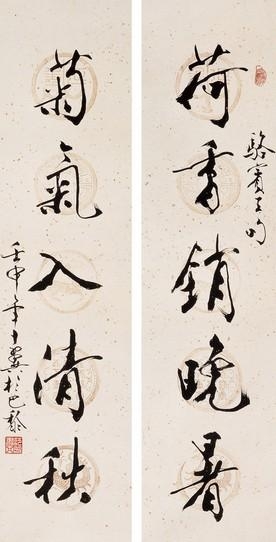 荷香銷晚暑
駱賓王句
菊氣入清秋
壬申年十翼於巴黎